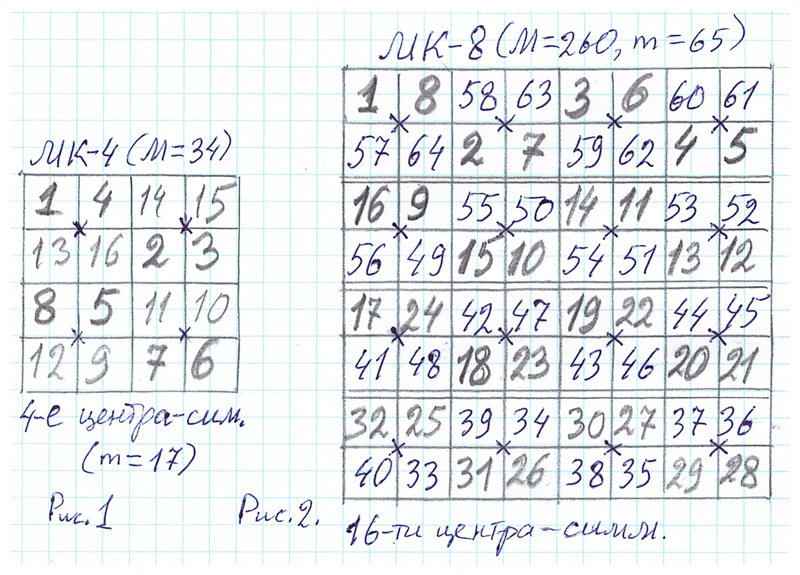 МК-8 (М=260, m=65)
1 8 58 63 3 6 60 61
57 64 2 7 59 62 4 5
16 9 55 50 14 11 53 52
56 49 15 10 54 51 13 12
17 24 42 47 19 22 44 45
41 48 18 23 43 46 20 21
32 25 39 34 30 27 37 36
40 33 31 26 38 35 29 28
16-ти центра-симм.
Рис.2.
МК-4 (М=34)
1 4 14 15
13 16 2 3
8 5 11 10
12 9 7 6
4-е центра-сим.
(m=17)
Рис.1